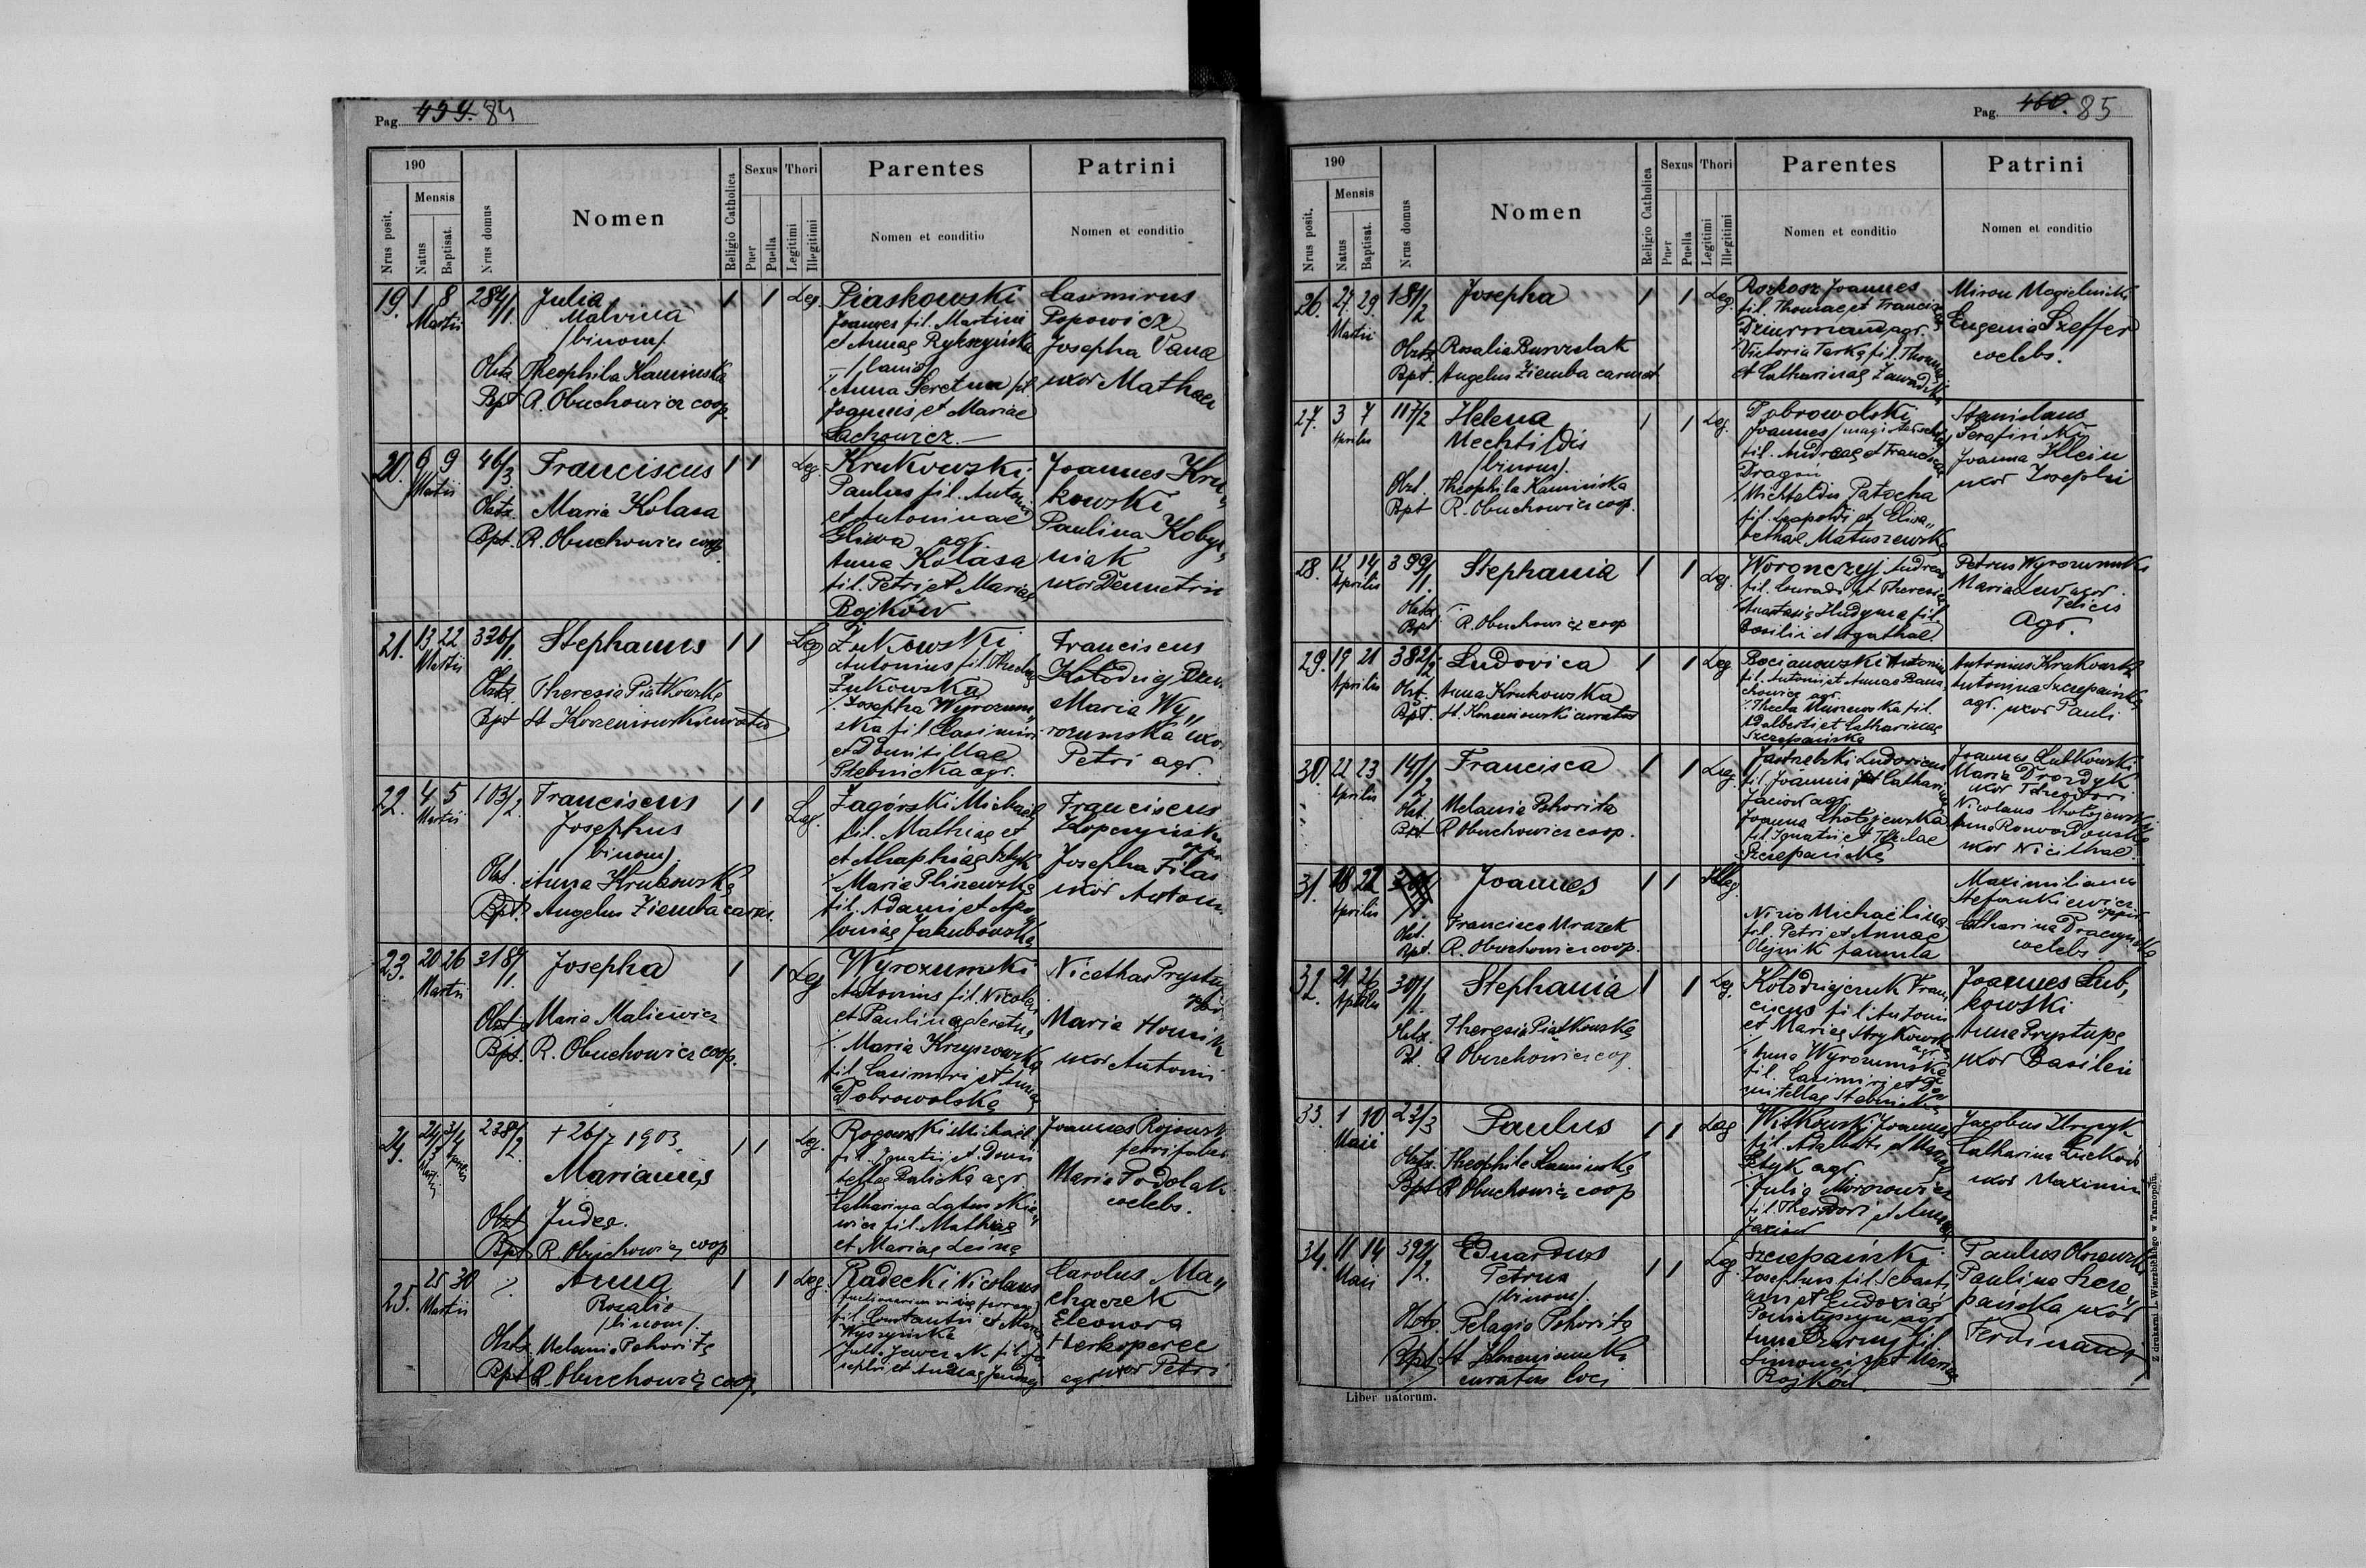 Pag. 459. 84
190
Nrus posit.
Mensis
Natus
Baptisat.
Nrus domus
Nomen
Religio Catholica
Sexus
Puer
Puella
Thori
Legitimi
Illegitimi
Parentes
Nomen et conditio
Patrini
Nomen et conditio
19. 1 8 Martii 284/1
Julia
Malvina
/binom/.
Obstx. Theophila Kaminska
Bpt. R. Obuchowicz coop.
1 1 Leg.
Piaskowski
Joannes fil. Martini
et Annae
/lanio/
Anna Seretna fil.
Joannis et Mariae
Lachowicz.
Casimirus
Popowicz
Josepha Vana
uxor Mathaei
20. 6 9 Martii 46/3
Franciscus
Obstx. Maria Kolasa
Bpt. R. Obuchowicz coop.
1 1 Leg.
Krukowski
Paulus fil. Antonii
et Antoninae
Gliwa agr.
Anna Kolasa
fil. Petri et Mariae
Bojków
Joannes Kru„
kowski
Paulina Kobyl„
niak
uxor Demetrii
21. 13 22 Martii 336/1
Stephanus
Obstx. Theresia Piatkowska
Bpt. St. Korzeniowski curatus
1 1 Leg
Żukowski
Antonius fil. Theclae
Żukowska
Josepha Wyrozum„
ska fil. Casimiri
et Domitillae
Stebnicka agr.
Franciscus
Maria Wy„
rozumska uxor
Petri agr.
22. 4 5 Martii 103/2
Franciscus
Josephus
/binom/
Obst. Anna Krukowska
Bpt. Angelus Ziemba carm.
1 1 Leg.
Zagórski Michael
fil. Mathiae et
et Agaphiae
Maria Pliszewska
fil. Adami et Apo„
loniae Jakubowska
Franciscus
Kopczyński
Josepha Filas
uxor Antoni
23. 20 26 Martii 318/1
Josepha
Obst. Maria Maliewicz
Bpt. R. Obuchowicz coop.
1 1 Leg
Wyrozumski
Antonius fil. Nicolai
et Paulinae Seretna
Maria Kryszowska
fil. Casimiri et Annae
Dobrowolska
Nicethas Prystupa
Maria Homik
uxor Antonii
24. 24/3 Martii 3/4 Aprilis 238/2
+ 26/7 1903.
Marianus
Obst. Judea.
Bpt. R. Obuchowicz coop
1 1 Leg.
Rogowski Michael
fil. Ignatii et Domi
tellae Baliska agr.
Catharina
wicz fil. Mathiae
et Mariae
Joannes
Maria Podolak
coelebs.
25. 25 30 Martii
Anna
Rozalia
/binom/.
Obstx. Melania Pohorita
Bpt. R. Obuchowicz coop.
1 1 Leg.
Radecki Nicolaus
fil. Constantii et Mariae
Wyszyńska
fil. Jo„
sephi et Annae
Carolus Ma„
chaczek
Eleonora
uxor Petri
agr.
Pag. 460. 85
190
Nrus posit.
Mensis
Natus
Baptisat.
Nrus domus
Nomen
Religio Catholica
Sexus
Puer
Puella
Thori
Legitimi
Illegitimi
Parentes
Nomen et conditio
Patrini
Nomen et conditio
26. 27 29 Martii 181/2
Josepha
Obstx. Rosalia Burrzelak
Bpt. Angelus Ziemba carmet
1 1 Leg.
Rozkosz Joannes
fil. Thomae et Franciscae
agr.
Victoria Tarka fil. Thomae
et Catharinae Zawadzka
Miron Mogielnicki
Eugenia Szeffer
coelebs.
27. 3 7 Aprilis 117/2
Helena
Mechtildis
/binom/.
Obst. Theophila Kaminska
Bpt R. Obuchowicz coop.
1 1 Leg.
Dobrowolski
Joannes
fil. Andreae et Franciscae
Dragan
Mechtildis Patocha
fil. Leopoldi et Elisa„
bethae Matuszewska
Stanislaus
Serafiński
Joanna Klein
uxor Josephi
28. 12 14 Aprilis 399/1
Stephania
Obstx.
Bpt R. Obuchowicz coop
1 1 Leg.
Woronczyj Andreas
fil. Conradi et Theresiae
Anastasia Hudyma fil.
Basilii et Agathae.
Petrus Wyrozumski
Maria Lew uxor
Felicis
Agr.
29. 19 21 Aprilis 382/2
Ludovica
Obst. Anna Krukowska
Bpt. St. Korzeniowski curatus
1 1 Leg
Bocianowski Antonius
fil. Antonii et Annae Bara„
chowicz agr.
Thecla Muszewska fil.
Adalberti et Catharinae
Szczepańska
Antonius Krakowski
Antonina Szczepańska
agr. uxor Pauli
30. 22 23 Aprilis 141/2
Francisca
Obst. Melania Pohorita
Bpt R Obuchowicz coop.
1 1 Leg.
Jastrzebski Ludovicus
fil. Joannis et Catharinae
Jaciów agr.
Joanna Chołojewska
fil Ignatii et Theclae
Szczepańska
Joannes Lubkowski
Maria Drozdyk
uxor Theodori
Nicolaus Chołojewski
Anna
uxor Nicethae.
31. 18 22 Aprilis
Joannes
Obst. Francisca Mrazek
Bpt. R. Obuchowicz coop.
1 1 Illeg.
Michaëlina
fil. Petri et Annae
Olejnik famula
Maximilianus
Stefankiewicz
Catharina
coelebs
32. 21 26 Aprilis 301/1
Stephania
Obstx. Theresia Piatkowska
Bt. R Obuchowicz coop
1 1 Leg.
Kołodziejczuk Fran„
ciscus fil. Antonii
et Mariae Strykowska
agr.
Anna Wyrozumska
fil. Casimiri et Do„
mitellae Stebnicka
Joannes Lub„
kowski
Anna Prystupa
uxor Basilii
33. 1 10 Maii 23/3
Paulus
Obstx. Theophila Kaminska
Bpt R Obuchowicz coop
1 1 Leg
Witkowski Joannes
fil. Adalberti et Mariae
Petyk agr
Julia Morozowicz
fil. Theodori et Annae
Jaciów
Jacobus
Catharina
uxor Maximi
34. 11 14 Maii 392/2.
Eduardus
Petrus
/binom/.
Obstx. Pelagia Pohorita
Bpt St Korzeniowski
curatus loci
1 1 Leg.
Szczepański
Josephus fil. Sebasti
ani et Eudoxiae
agr
Anna fil.
Simonis et Mariae
Bojków.
Paulus
Paulina Szcze„
pańska uxor
Ferdinandi
Liber natorum.
Z drukarni L. Wierzbickiego w Tarnopolu.